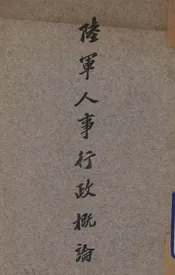 陸軍人事行政概論